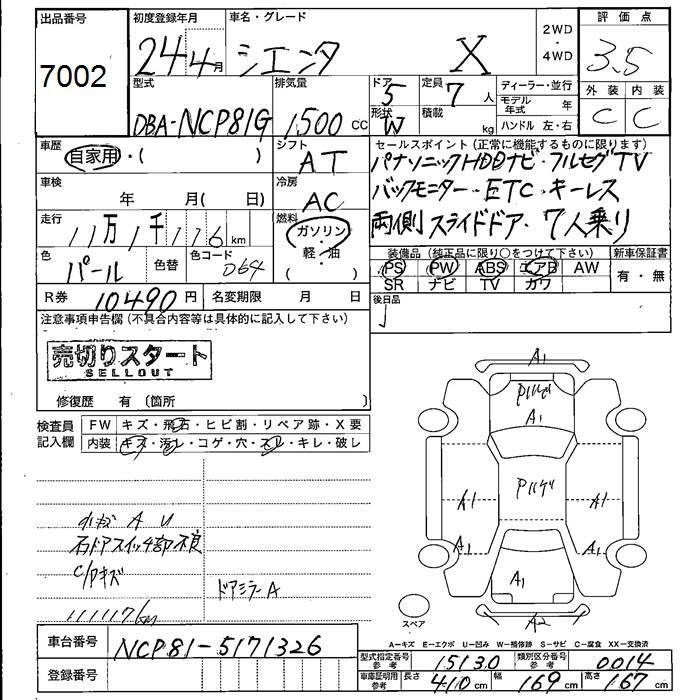 出品番号 初度登録年月 車名・グレード 2WD・4WD 評価点
7002 24年4月 シエンタ X 3.5
型式 排気量 ドア 5 定員 7人 ディーラー・並行 外装 内装
DBA-NCP81G 1,500cc 形状 W 積載 kg モデル年式 年 C C
ハンドル 左・右
車歴 シフト セールスポイント(正常に機能するものに限ります)
自家用・( ) AT パナソニックHDDナビ・フルセグTV
車検 年 月(日) 冷房 AC バックモニター・ETC・キーレス
走行 11万1千116km 燃料 ガソリン・軽・油・( ) 両側スライドドア・7人乗り
色 パール 色替 色コード 064 装備品(純正品に限り○をつけて下さい) 新車保証書
PS PW ABS エアB AW 有・無
SR ナビ TV カワ
R券 10490円 名変期限 月 日 後日品
注意事項申告欄(不具合内容等は具体的に記入して下さい)
売切りスタート
SELLOUT
修復歴 有〔箇所 〕
検査員記入欄 FW キズ・飛石・ヒビ割・リペア跡・X要
内装 キズ・汚レ・コゲ・穴・スレ・キレ・破レ
A1
A1
A1 A1
A1 A1
A1
A2
A U
右ドアスイッチ部不良
キズ
ドアミラーA
111117km
スペア
A-キズ E-エクボ U-凹み W-補修跡 S-サビ C-腐食 XX-交換済
車台番号 NCP81-5171326
型式指定番号 参考 15130 類別区分番号 参考 0014
登録番号
車庫証明用 参考 長さ 410cm 幅 169cm 高さ 167cm